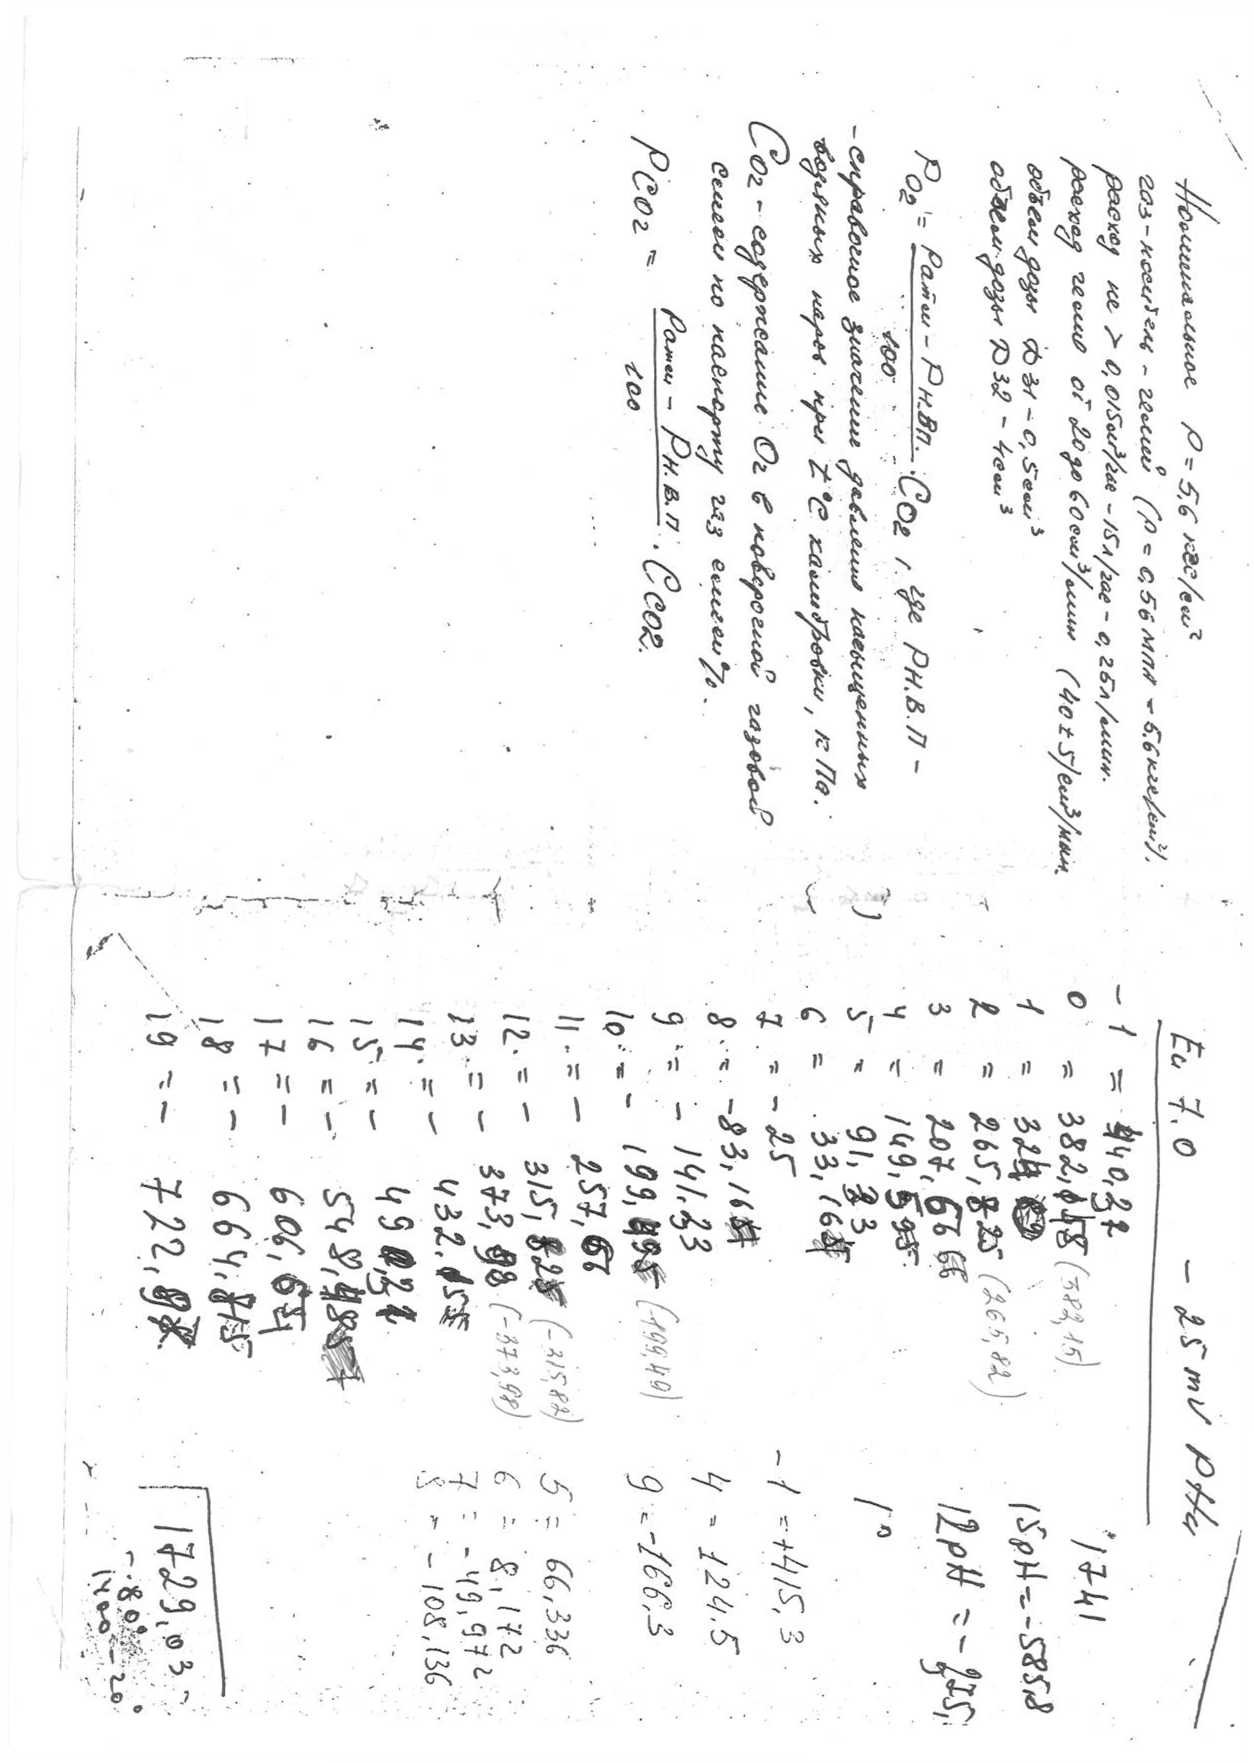 Номинальное P = 5,6 кгс/см²
газ-носитель - гелий (P = 0,56 МПА - 5.6 кгс/см²).
расход не > 0,015 м³/час - 15 л/час - 0,25 л/мин.
расход гелия от 20 до 60 см³/мин (40 ± 5/см³/мин.
объем дозы Д31 - 0,5 см³
объем дозы Д32 - 4 см³
PO2 = Pатм - Pн.вп. / 100 · CO2, где Pн.в.п -
- справочное значение давления насыщенных
водяных паров при t°C калибровки, кПа.
CO2 - содержание O2 в поверочной газовой
смеси по паспорту газ смеси %.
PCO2 = Pатм - Pн.в.п / 100 · CCO2.
Eи 7.0 - 25 mV PHи
- 1 = 440,32
0 = 382,158 (382,15)
1 = 324
2 = 265,825 (265,82)
3 = 207,66
4 = 149,5
5 = 91,33
6 = 33,16
7 = - 25
8 = - 83,16
9 = - 141,23
10 = - 199,495 (-199,49)
11 = - 257,66
12 = - 315,825 (-315,82)
13 = - 373,98 (-373,98)
14 = - 432.15
15 = - 490,31
16 = - 548,48
17 = - 606,65
18 = - 664,815
19 = - 722,98
1741
15pH = - 585,8
12pH =
- 1 = +415,3
4 = 124.5
9 = -166,3
5 = 66,336
6 = 8,172
7 = - 49,972
8 = - 108,136
1729,03